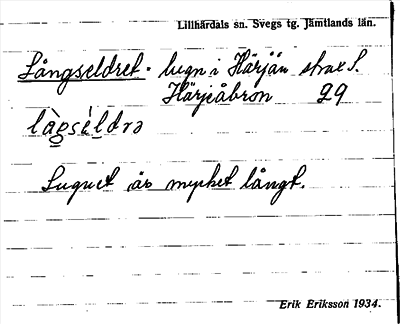 Lillhärdals sn. Svegs tg. Jämtlands län.
Långseldret. lugn i Härjån strax S.
Härjeåbron 29
Lugnet är mycket långt.
Erik Eriksson 1934.